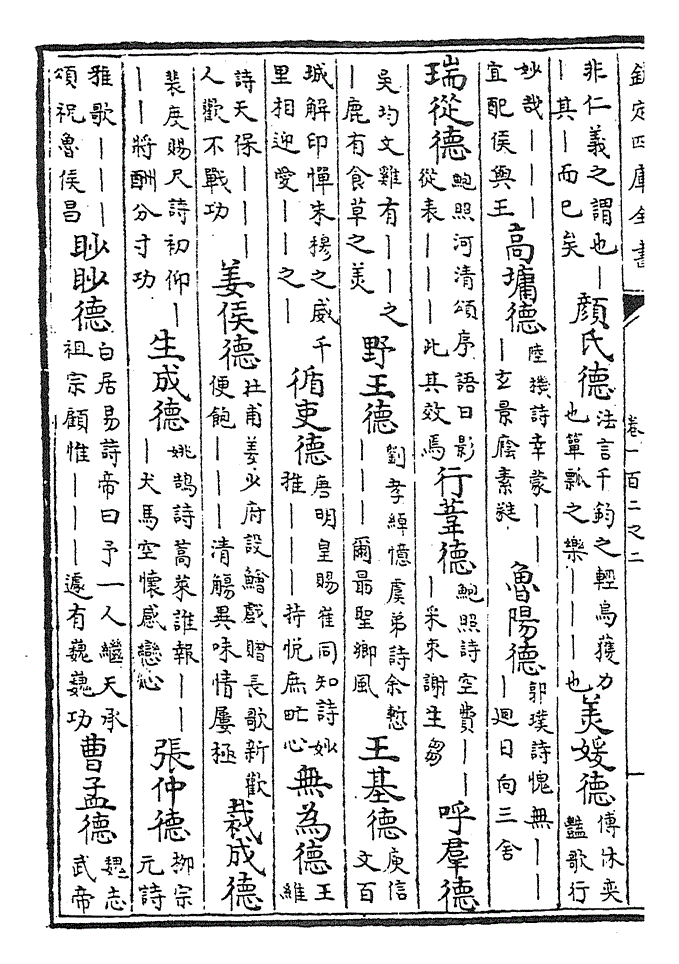 欽定四庫全書 卷一百二之二
非仁義之謂也｜｜其｜而已矣 顔氏德 法言千鈞之輕烏獲力也簞瓢之樂｜｜｜也 美媛德 傅休奕豔歌行
妙哉｜｜｜宜配侯與王 高墉德 陸撲詩幸蒙｜｜｜玄景廕素蕤 魯陽德 郭璞詩愧無｜｜｜迴日向三舍
瑞從德 鮑照河清頌序語曰影從表｜｜｜｜此其效焉 行葦德 鮑照詩空費｜｜｜采來謝生芻 呼羣德
吳均文雞有｜｜之｜鹿有食草之美 野王德 劉孝綽憶虞弟詩余慙｜｜｜爾最聖卿風 王基德 庾信文百
城解印憚朱穆之威千里相迎愛｜｜之｜ 循吏德 唐明皇賜崔同知詩妙雅｜｜｜持悅庶甿心 無為德 王維
詩天保｜｜｜人歡不戰功 姜侯德 杜甫姜少府設鱠戲贈長歌新歡便飽｜｜｜清觴異味情屢極 裁成德
裴度賜尺詩初仰｜｜｜將酬分寸功 生成德 姚鵠詩蒿萊誰報｜｜｜犬馬空懷感戀心 張仲德 柳宗元詩
雅歌｜｜｜頌祝魯侯昌 眇眇德 白居易詩帝曰予一人繼天承祖宗顧惟｜｜｜遽有巍巍功 曹孟德 魏志武帝